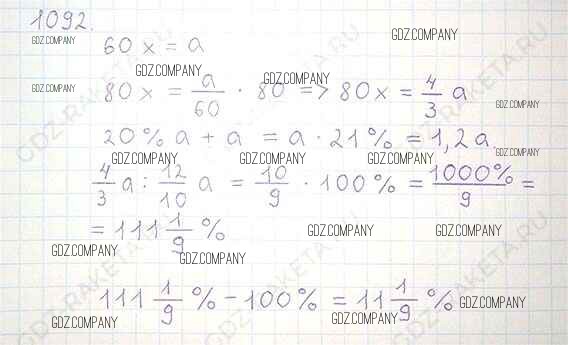 1092.
GDZ.COMPANY
60 x = a
GDZ.COMPANY
GDZ.COMPANY
GDZ.COMPANY
GDZ.COMPANY
80 x = a/60 · 80 => 80 x = 4/3 a
GDZ.COMPANY
20 % a + a = a · 21 % = 1,2 a.
GDZ.COMPANY
GDZ.COMPANY
GDZ.COMPANY
GDZ.COMPANY
4/3 a : 12/10 a = 10/9 · 100 % = 1000%/9 =
= 111 1/9 %
GDZ.COMPANY
GDZ.COMPANY
GDZ.COMPANY
GDZ.COMPANY
111 1/9 % - 100 % = 11 1/9 %
GDZ.COMPANY
GDZ.COMPANY
GDZ.COMPANY
GDZ-RAKETA.RU
GDZ-RAKETA.RU
GDZ-RAKETA.RU
GDZ-RAKETA.RU